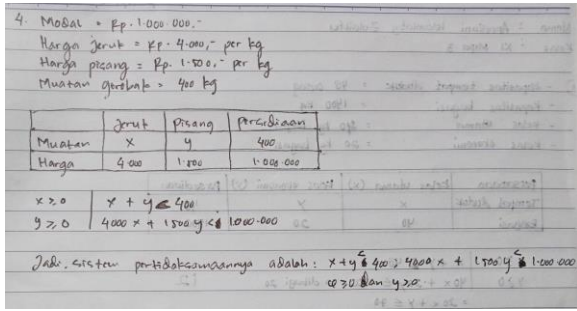 4. Modal = Rp. 1.000.000,-
Harga jeruk = Rp. 4.000,- per kg
Harga pisang = Rp. 1.500,- per kg
Muatan gerobak = 400 kg
Jeruk Pisang Persediaan
Muatan x y 400
Harga 4.000 1.500 1.000.000
x ≥ 0 x + y ≤ 400
y ≥ 0 4000 x + 1500 y ≤ 1.000.000
Jadi, sistem pertidaksamaannya adalah : x + y ≤ 400 ; 4000 x + 1.500 y ≤ 1.000.000
x ≥ 0 dan y ≥ 0